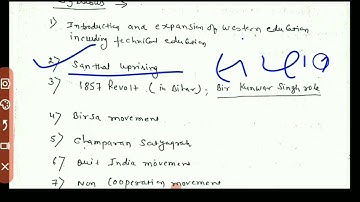 Syllabus →
1) Introduction and expansion of western education
including technical education
2) Santhal Uprising
3) 1857 Revolt (in Bihar); Bir Kunwar Singh role
4) Birsa movement
5) Champaran Satyagrah
6) Quit India movement
7) Non Cooperation movement